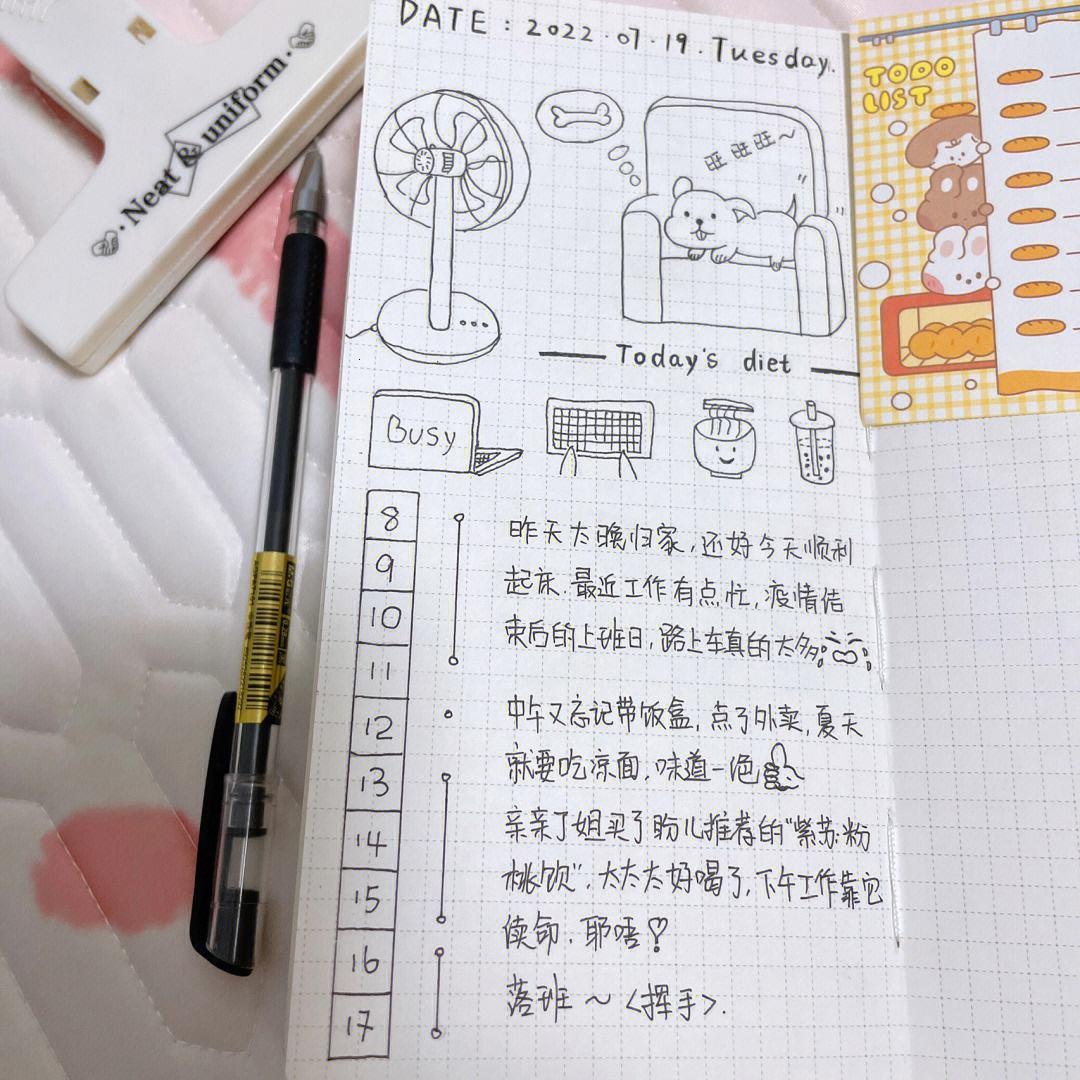 DATE : 2022.07.19.Tuesday.
Neat & uniform
TODO
LIST
旺旺旺～
Today's diet
Busy
8
9
10
11
12
13
14
15
16
17
昨天太晚归家,还好今天顺利
起床.最近工作有点忙,疫情结
束后的上班日,路上车真的太多
中午又忘记带饭盒,点了外卖,夏天
就要吃凉面,味道一绝
亲亲丁姐买了盼儿推荐的"紫苏粉
桃饮",太太太好喝了,下午工作靠它
续命.耶唔!
落班～<挥手>.